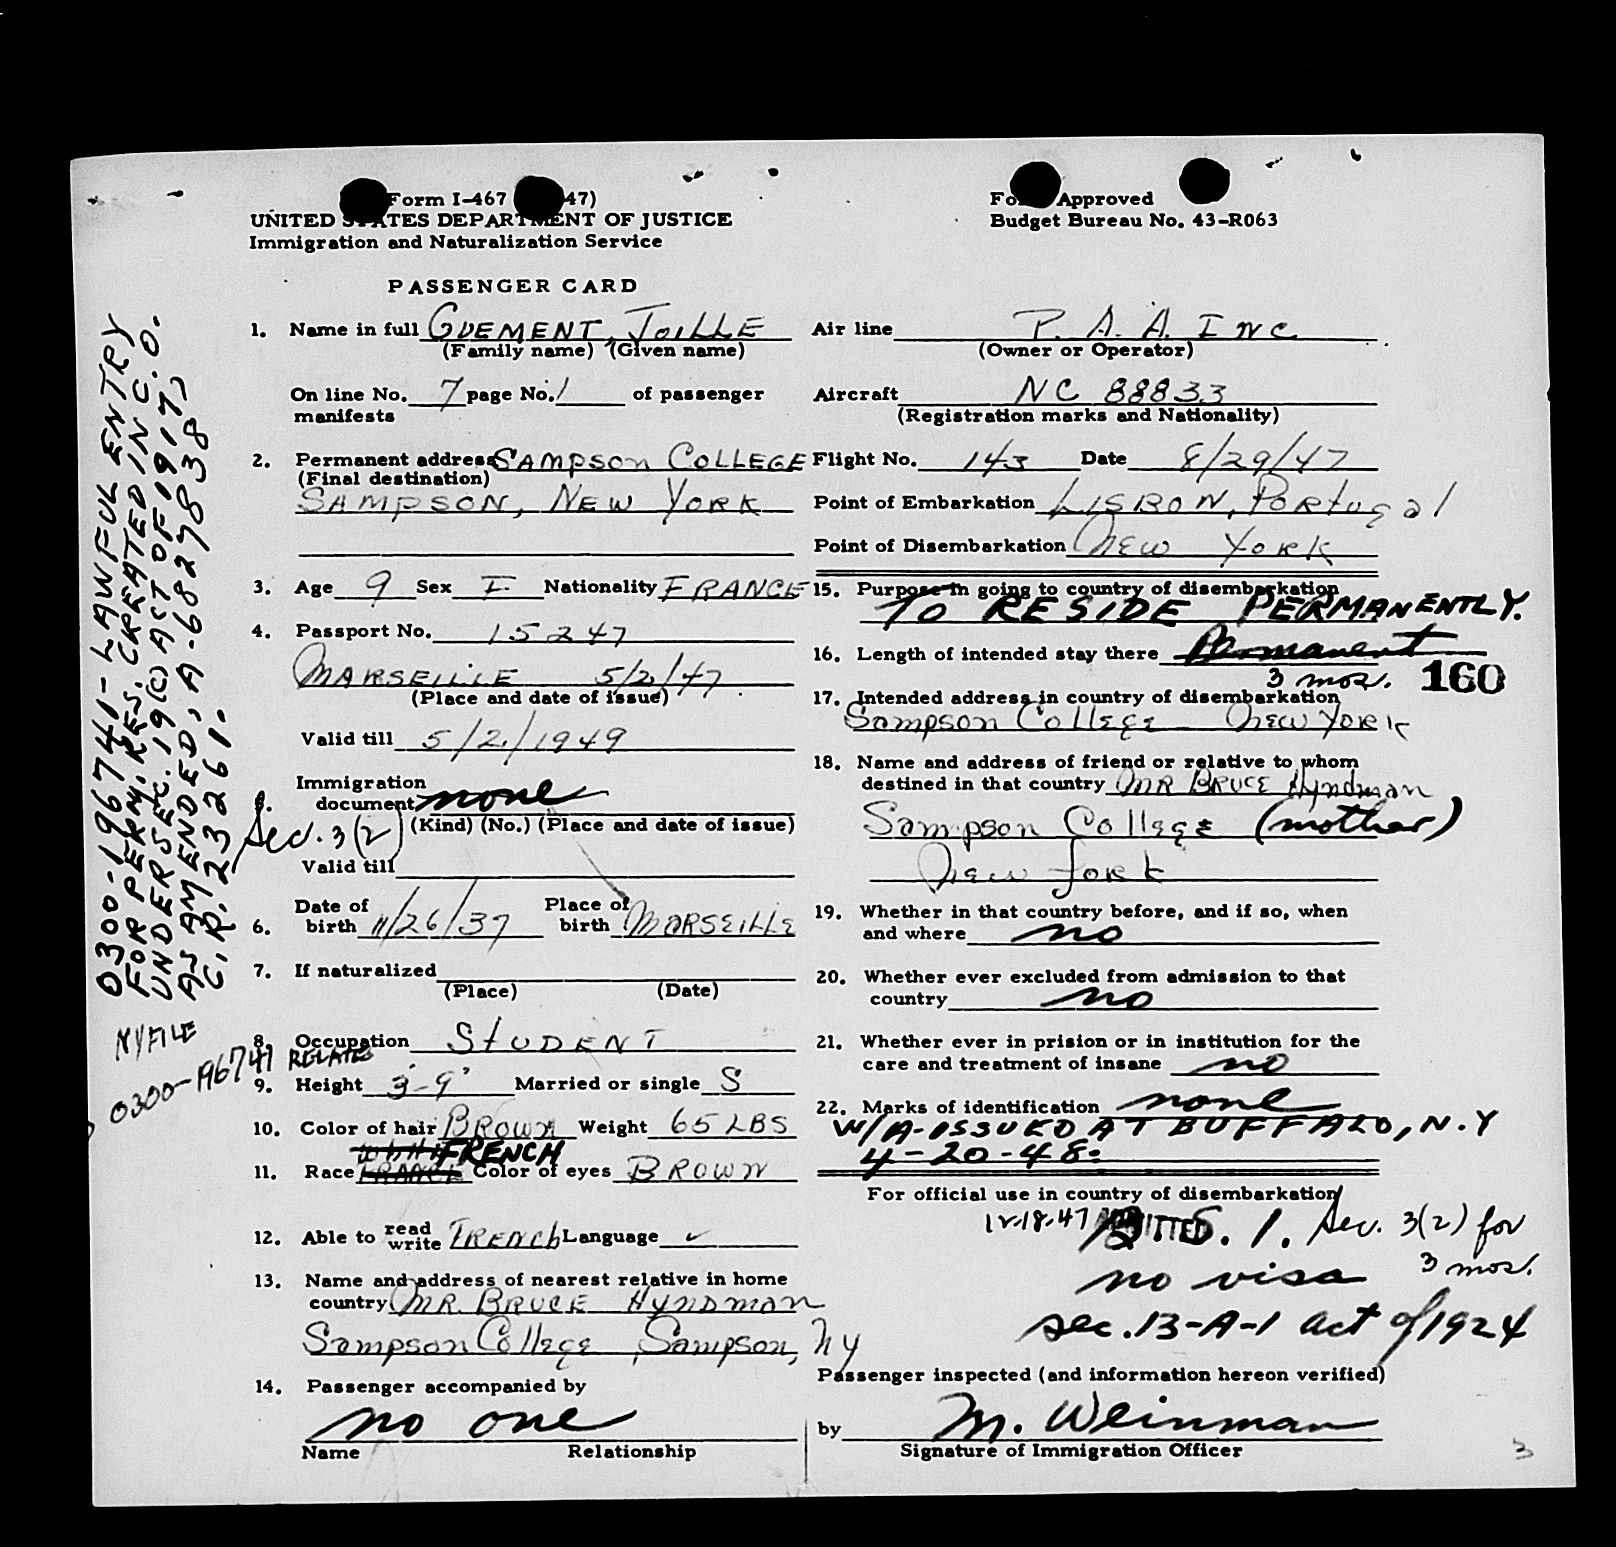 Form I-467 47)
UNITED STATES DEPARTMENT OF JUSTICE
Immigration and Naturalization Service
Form Approved
Budget Bureau No. 43-R063
PASSENGER CARD
1. Name in full GUEMENT, JOILLE
(Family name) (Given name)
On line No. 7 page No. 1 of passenger
manifests
2. Permanent address SAMPSON COLLEGE
(Final destination)
SAMPSON, NEW YORK
3. Age 9 Sex F Nationality FRANCE
4. Passport No. 15247
MARSEILLE 5/2/47
(Place and date of issue)
Valid till 5/2/1949
Immigration
5. document none
(Kind) (No.) (Place and date of issue)
Sec. 3(2)
Valid till
6. Date of birth 11/26/37 Place of birth MARSEILLE
7. If naturalized
(Place) (Date)
8. Occupation STUDENT
9. Height 3'-9" Married or single S
10. Color of hair BROWN Weight 65 LBS
11. Race FRANCE FRENCH Color of eyes BROWN
12. Able to read write FRENCH Language ✓
13. Name and address of nearest relative in home
country MR. BRUCE HYNDMAN
Sampson College, Sampson, NY
14. Passenger accompanied by
no one
Name Relationship
Air line P. A. A. INC
(Owner or Operator)
Aircraft NC 88833
(Registration marks and Nationality)
Flight No. 143 Date 8/29/47
Point of Embarkation LISBON, Portugal
Point of Disembarkation NEW YORK
15. Purpose in going to country of disembarkation
TO RESIDE PERMANENTLY.
16. Length of intended stay there Permanent
3 mos. 160
17. Intended address in country of disembarkation
Sampson College New York
18. Name and address of friend or relative to whom
destined in that country MR BRUCE Hyndman
Sampson College (mother)
New York
19. Whether in that country before, and if so, when
and where no
20. Whether ever excluded from admission to that
country no
21. Whether ever in prision or in institution for the
care and treatment of insane no
22. Marks of identification none
W/A-ISSUED AT BUFFALO, N.Y
4-20-48.
For official use in country of disembarkation
12-18-47 ADMITTED S. I. Sec. 3(2) for
3 mos.
no visa
sec. 13-A-1 act of 1924
Passenger inspected (and information hereon verified)
by M. Weinman
Signature of Immigration Officer
3
0300-196741-LAWFUL ENTRY
FOR PERM. RES. CREATED IN C.O.
UNDER SEC. 19(C) ACT OF 1917,
AS AMENDED, A-6827838
C.R. 23261.
NY FILE
0300-196741 RELATES